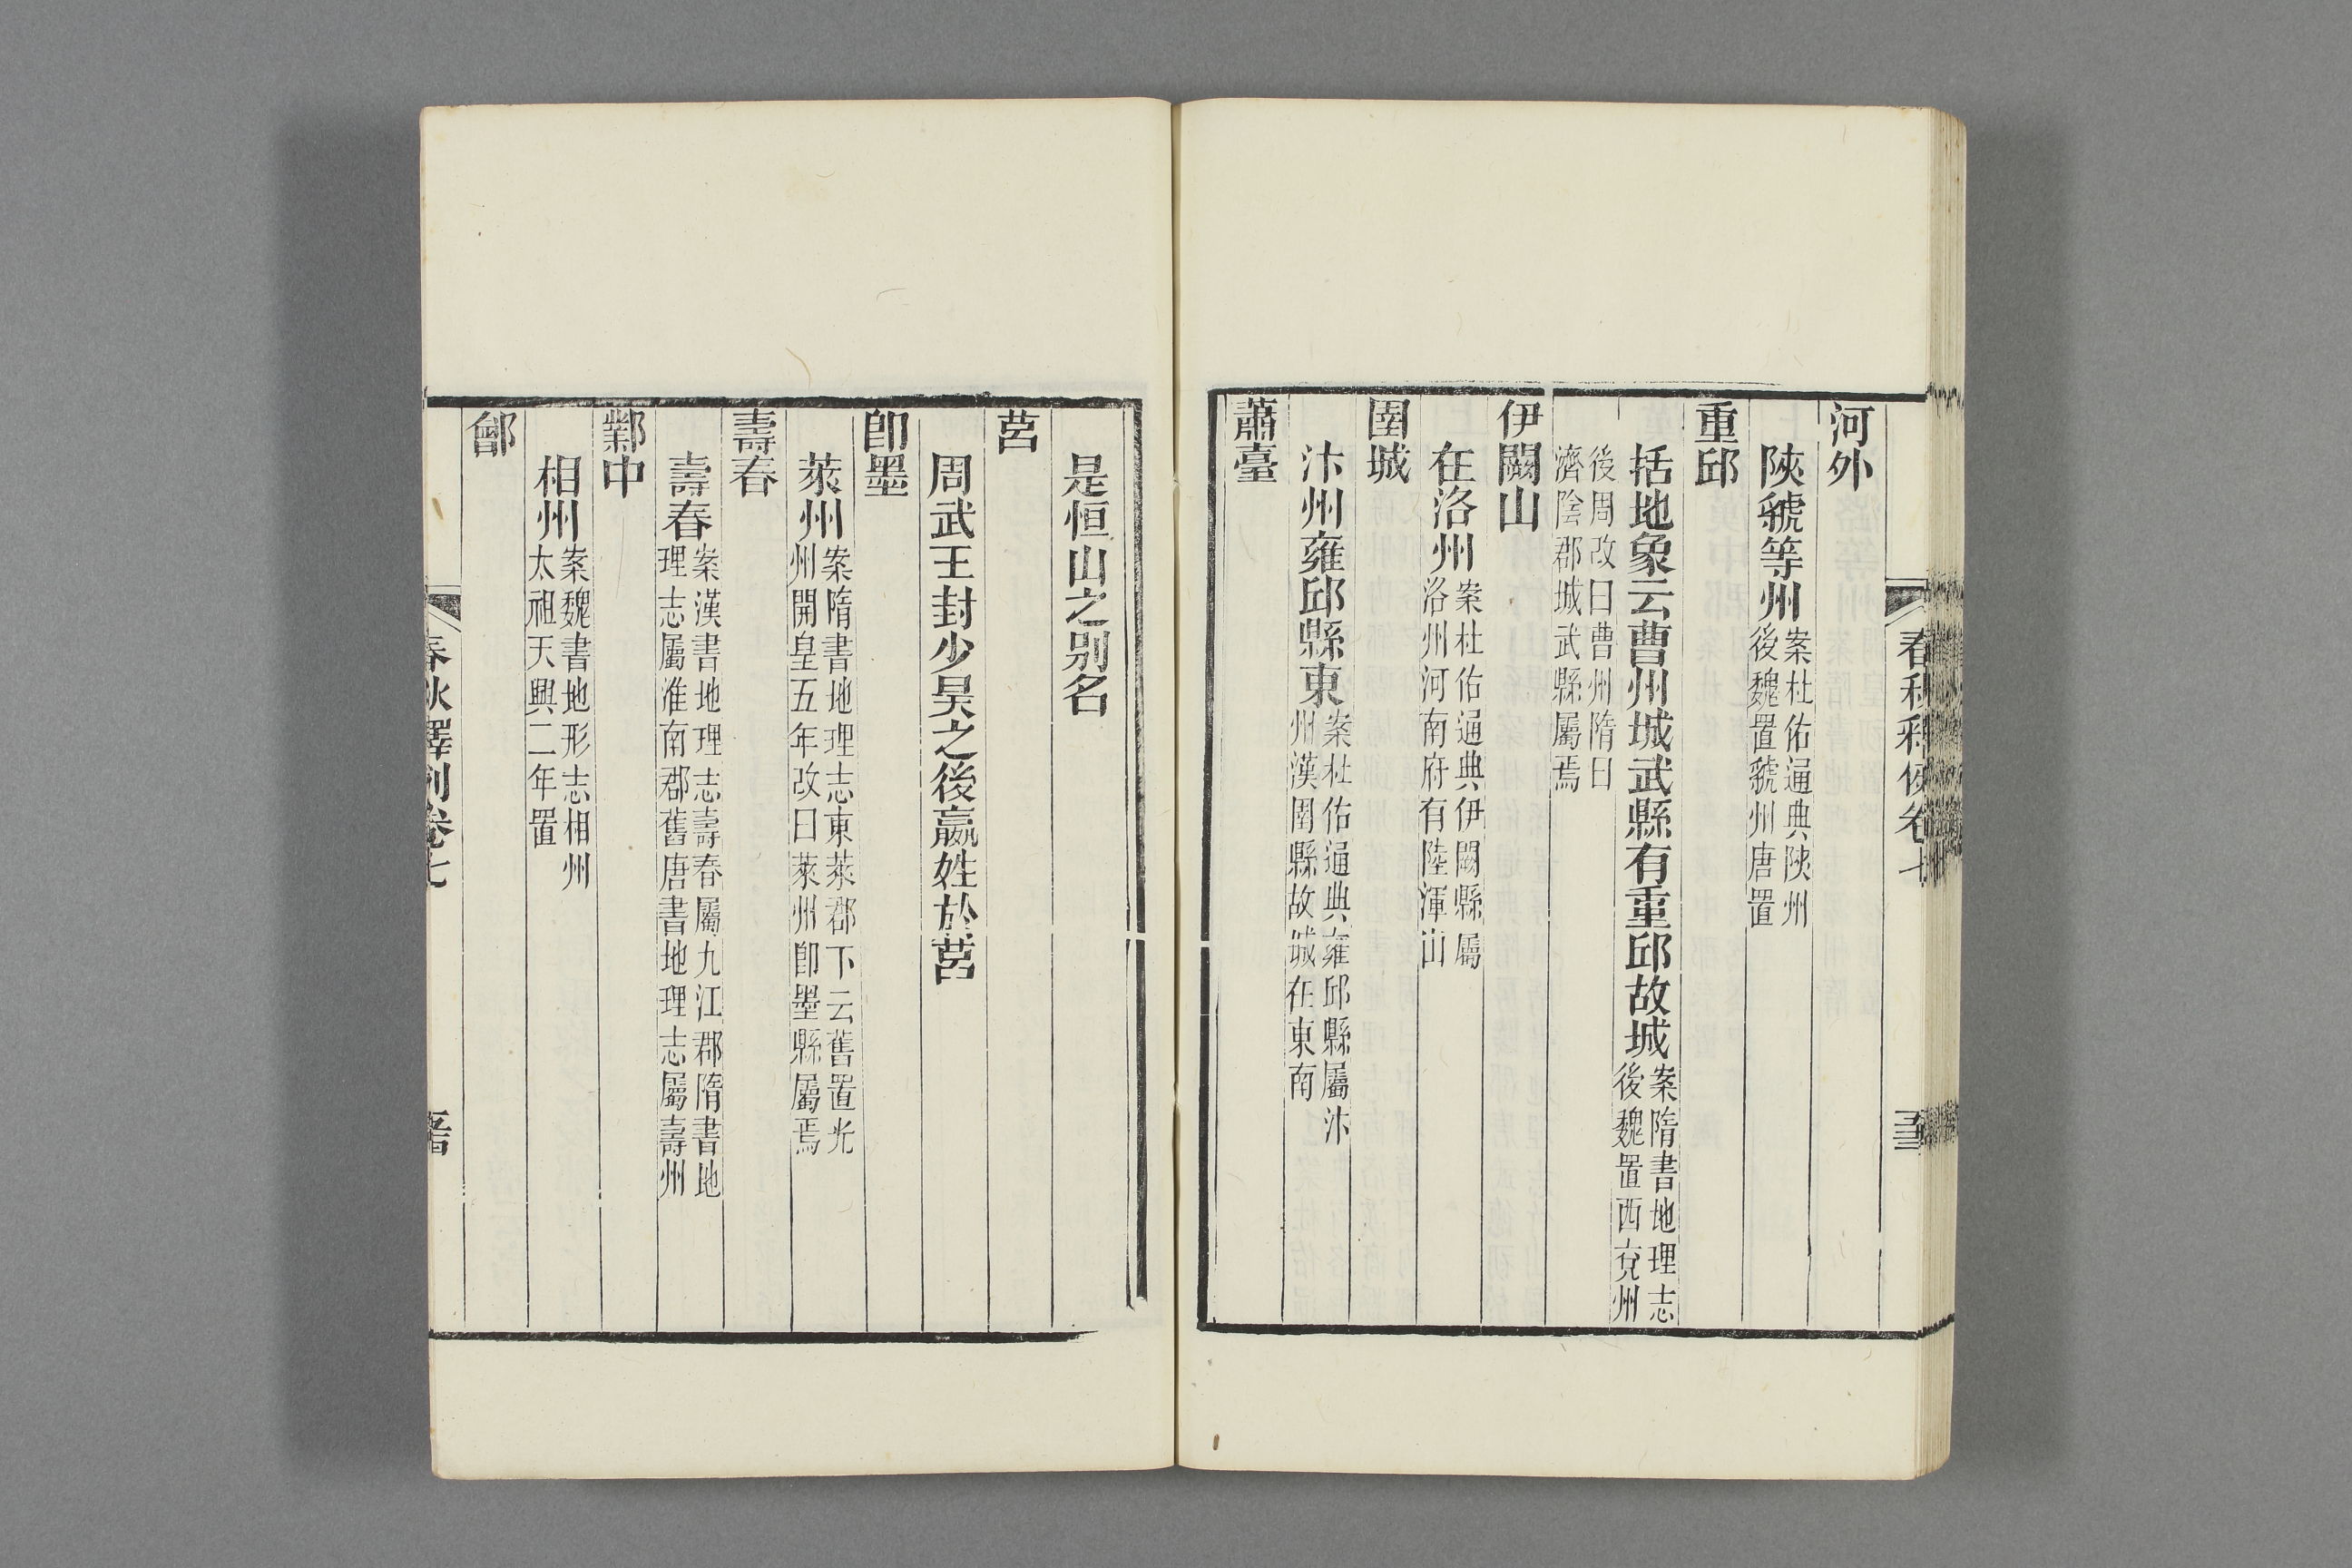 河外
陝虢等州案杜佑通典陝州後魏置虢州唐置
重邱
括地象云曹州城武縣有重邱故城案隋書地理志後魏置西兗州
後周改曰曹州隋曰濟陰郡城武縣屬焉
伊闕山
在洛州案杜佑通典伊闕縣屬洛州河南府有陸渾山
圉城
汴州雍邱縣東案杜佑通典雍邱縣屬汴州漢圉縣故城在東南
蕭臺
春秋釋例卷七
是恒山之别名
莒
周武王封少昊之後嬴姓於莒
卽墨
萊州案隋書地理志東萊郡下云舊置光州開皇五年改曰萊州卽墨縣屬焉
壽春
壽春案漢書地理志壽春屬九江郡隋書地理志屬淮南郡舊唐書地理志屬壽州
鄴中
相州案魏書地形志相州太祖天興二年置
鄫
春秋釋例卷七